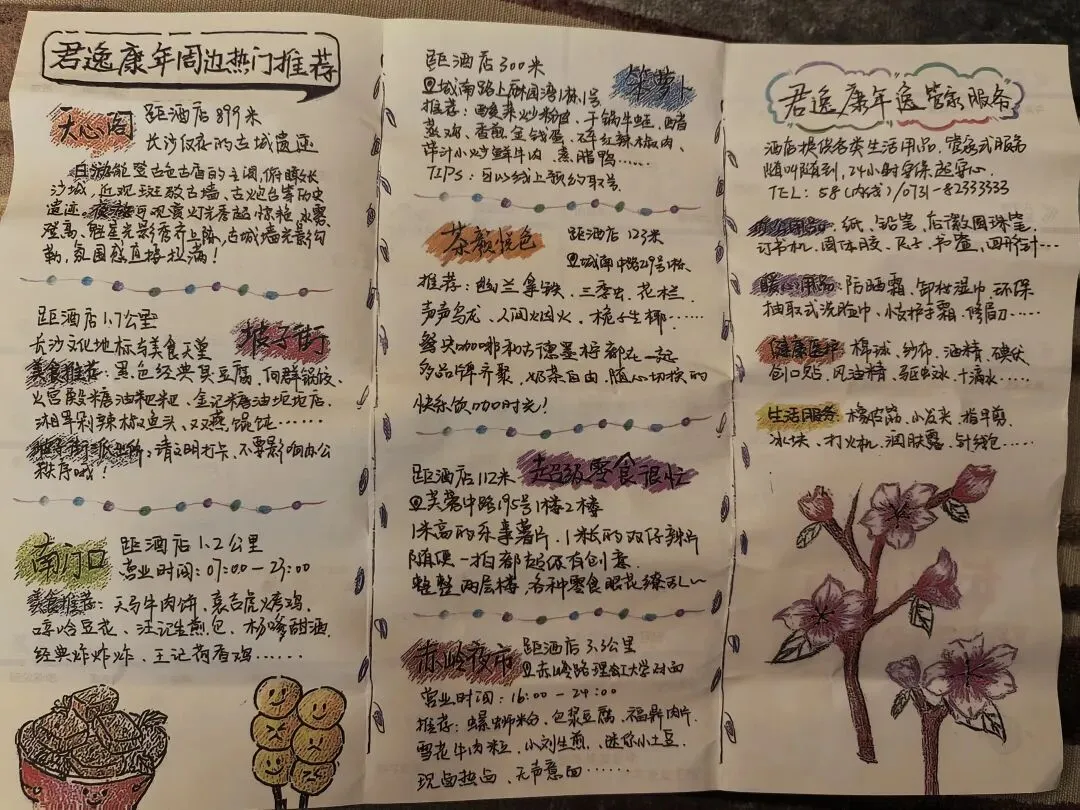 君逸康年周边热门推荐
天心阁 距酒店899米
长沙仅存的古城遗迹
日游能登古色古香的主阁,俯瞰长
沙城,近观斑驳古墙、古炮台等历史
遗迹。夜间可观赏灯光秀超惊艳,水雾
登高、胜星光影秀齐上阵,古城墙光影勾
勒,氛围感直接拉满!
距酒店1.7公里
坡子街
长沙文化地标与美食天堂
美食推荐:黑色经典臭豆腐、向群锅饺、
火宫殿糖油粑粑、金记糖油坨坨店、
湘军剁辣椒鱼头、双燕馄饨……
坡子街派出所:请文明打卡,不要影响办公
秩序哦!
南门口 距酒店1.2公里
营业时间:07:00-23:00
美食推荐:天马牛肉饼、袁吉虎烤鸡、
哼哈豆花、汪记生煎包、杨嗲甜酒、
经典炸炸炸、王记荷香鸡……
距酒店300米
笨萝卜
城南路上麻园湾1栋1号
推荐:酸菜炒粉皮、干锅牛蛙、醋
蒸鸡、香煎金钱蛋、碎红辣椒肉、
洋汁小炒鲜牛肉、蒸腊鸭……
TIPS:可以线上预约取号
茶颜悦色 距酒店123米
城南中路29号1栋
推荐:幽兰拿铁、三季虫、花栏、
声声乌龙、人间烟火、栀子生椰……
鸳央咖啡和古德墨柠都在一起
多品牌齐聚,奶茶自由,随心切换的
快乐饮咖时光!
距酒店112米 超级零食很忙
芙蓉中路195号1楼2楼
1米高的乐事薯片、1米长的双仔辣片
随便一拍都超级有创意
整整两层楼,各种零食眼花缭乱~
赤岭夜市 距酒店3.3公里
赤岭路理工大学对面
营业时间:16:00-24:00
推荐:螺蛳粉、包浆豆腐、福鼎肉片、
雪花牛肉粒、小刘生煎、迷你小土豆、
现卤热卤、无声意面……
君逸康年逸管家服务
酒店提供各类生活用品,管家式服务
随叫随到,24小时安保超安心
TEL:58(内线)/0731-82333333
办公用品:纸、铅笔、后徽圆珠笔、
订书机、固体胶、尺子、书签、回形针…
暖心用品:防晒霜、卸妆湿巾、环保
抽取式洗脸巾、小支护手霜、修眉刀……
健康医护 棉球、纱布、酒精、碘伏
创口贴、风油精、驱蚊水、十滴水……
生活服务 橡皮筋、小发夹、指甲剪、
冰块、打火机、润肤露、针线包……